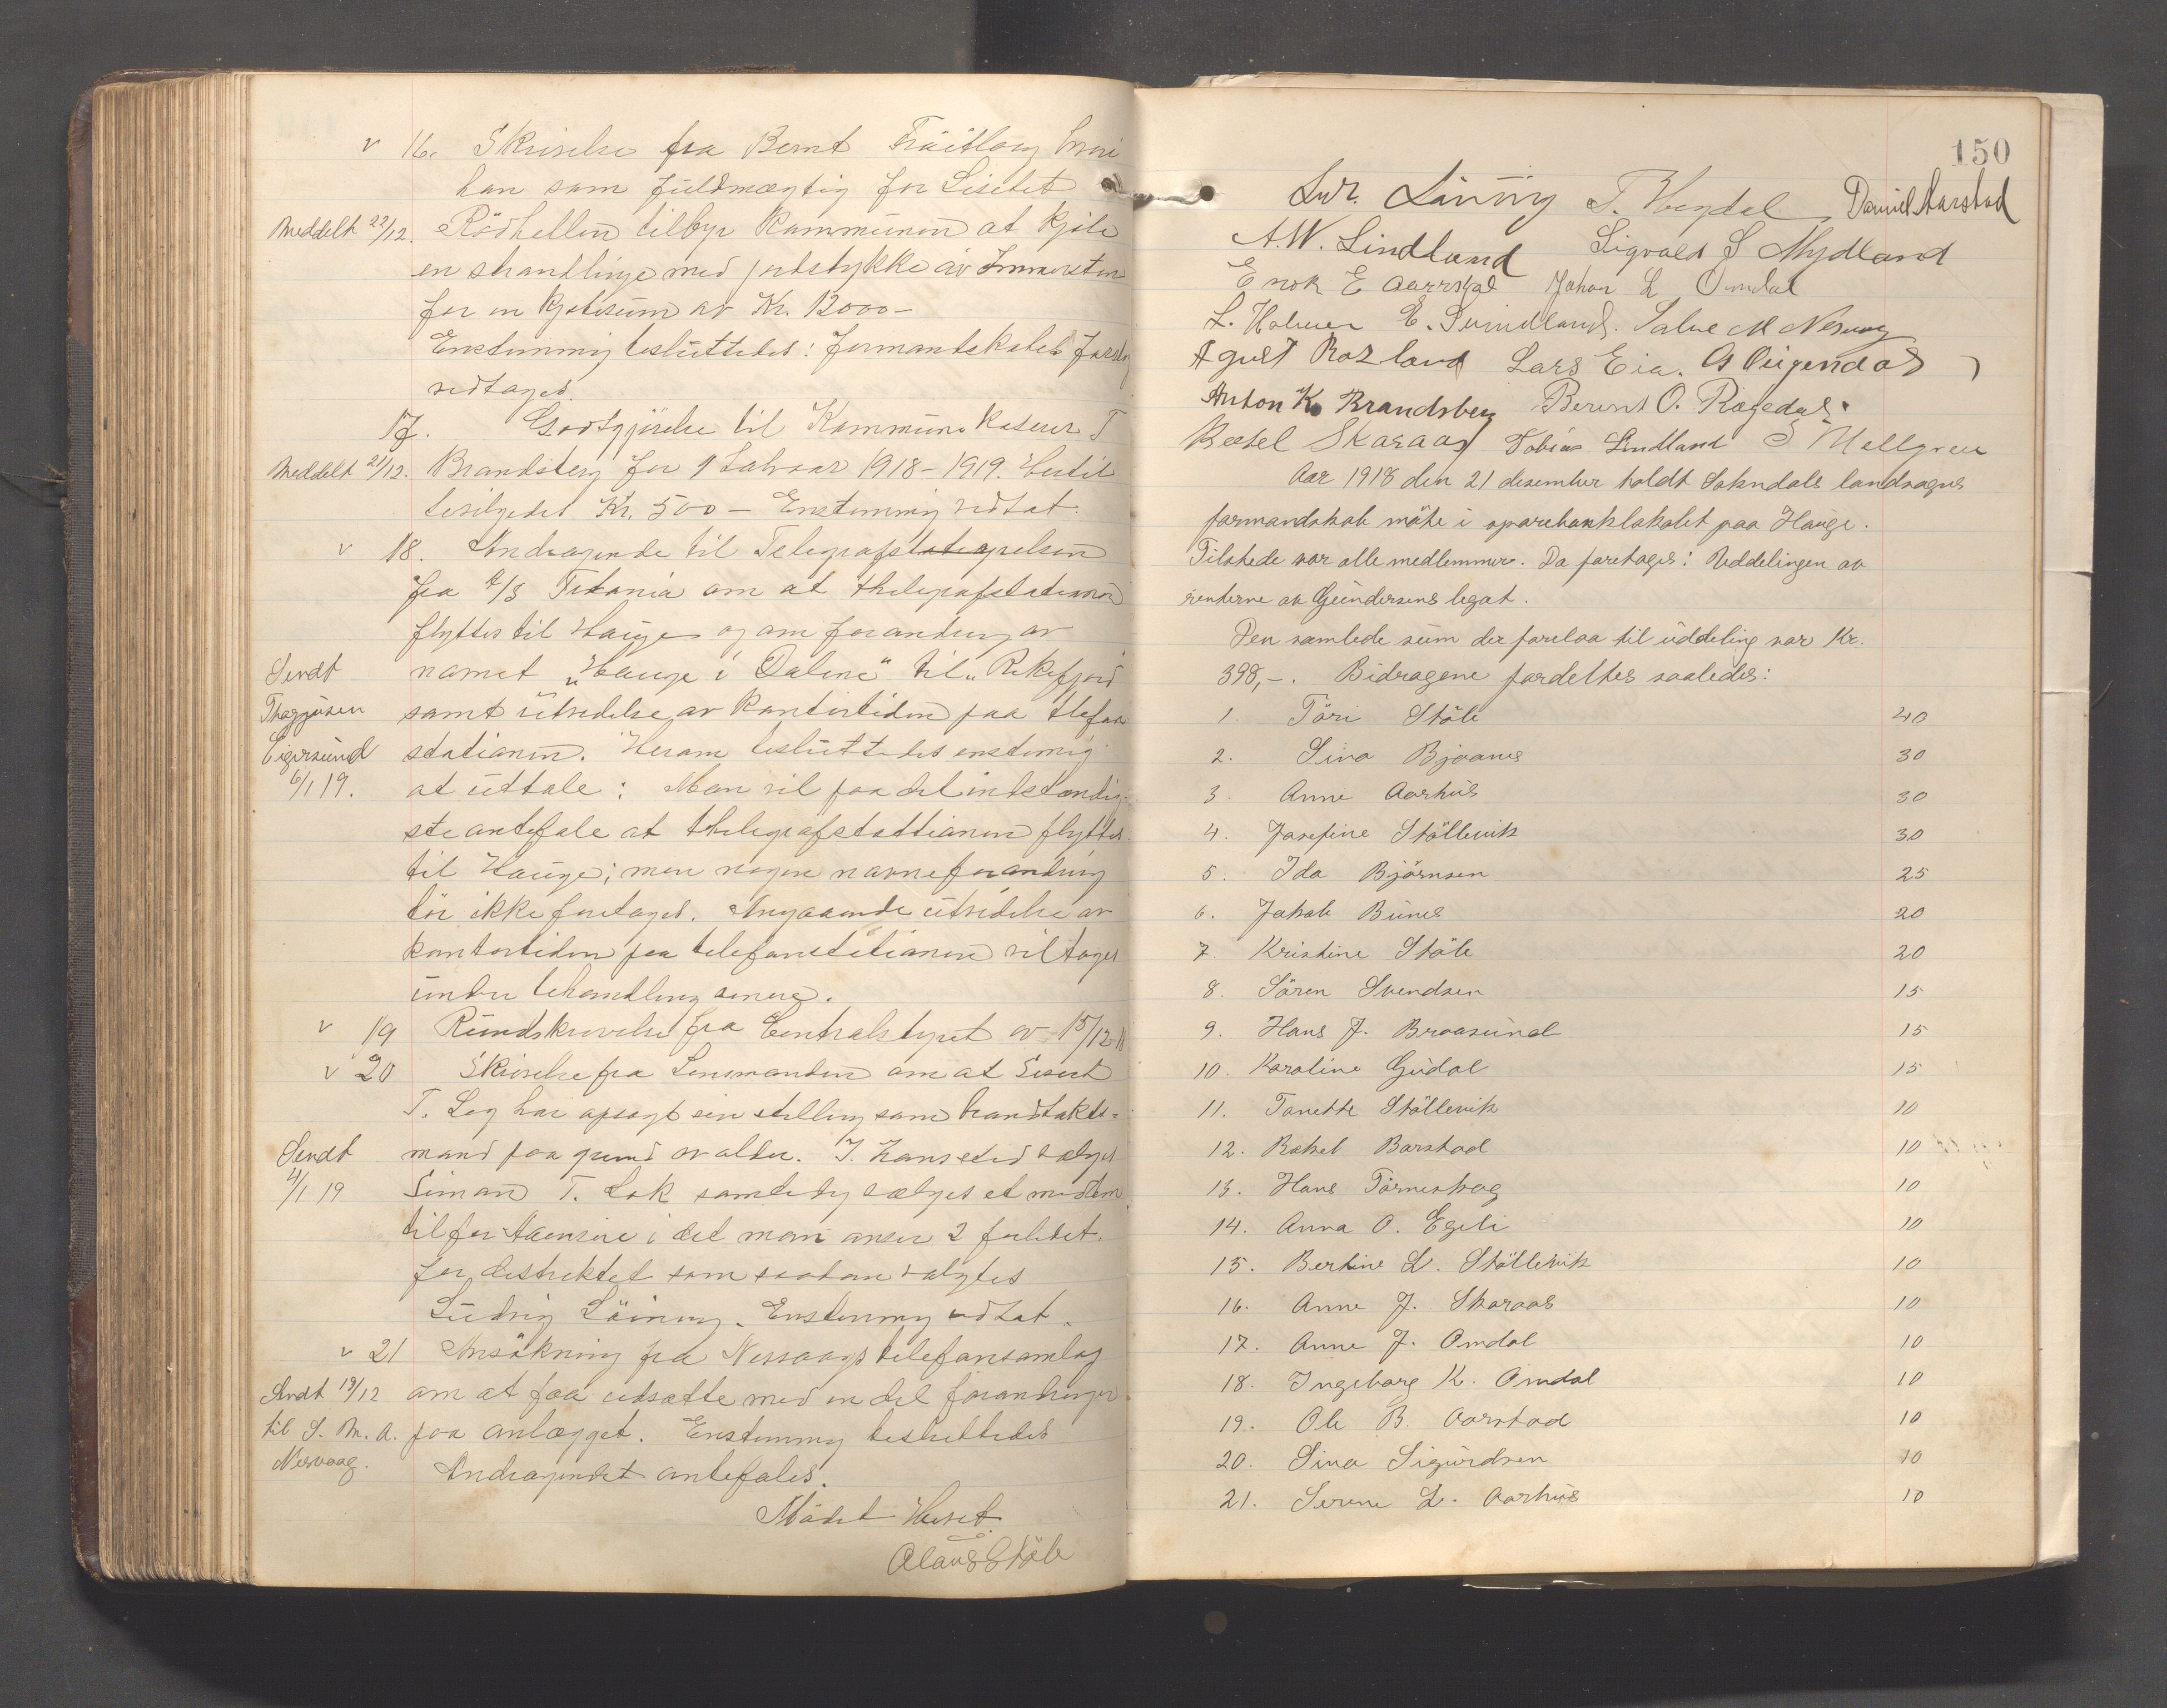 v 16. Skrivelse fra Bernt Fräitlang hvori
han som fuldmægtig for Sisebet
Meddelt 22/12. Rödhellen tilbyr kommunen at kjöbe
en strandlinje med jordstykke av Immersten
for en kjöbesum av Kr. 12000 –
Enstemmig besluttedes: Formandskabets forslag
vedtages.
17. Godtgjörelse til Kommunekaserer T
Meddelt 21/12. Brandsberg for 1 halvaar 1918 – 1919. Hertil
bevilgedes Kr. 500 – Enstemmig vedtat.
v 18. Andragende til Telegrafstyrelsen
fra A/S Titania om at thelegrafstationen
flyttes til Hauge og om forandring av
Sendt navnet „Hauge i Dalene" til „Rekefjord
Thorgjusen samt utvidelse av kontortiden paa telefon
Eigersund stationen. Herom besluttedes enstemig
6/1 19. at uttale: Man vil paa det indstændig-
ste anbefale at thelegrafstattionen flyttes
til Hauge; men nogen navneforandring
bör ikke foretages. Angaaende utvidelse av
kontortiden paa telefonstationen vil tages
under behandling senere.
v 19 Rundskrivelse fra Centralstyret av 15/12-18
v 20 Skrivelse fra Lensmanden om at Sivert
T. Log har opsagt sin stilling som brandtakts-
Sendt mand paa grund av alder. I hans sted vælges
4/1 19 Simon T. Lok samtidig vælges et medlem
til for Aaensire i det man anser 2 forlitet
for distriktet som saadan valgtes
Ludvig Löining. Enstemmig vedtat.
v 21 Ansökning fra Nesvaags telefonsamlag
Sendt 19/12 om at faa utsatte med en del forandringer
til S. M. A. paa anlægget. Enstemmig besluttedes
Nesvaag. Andragendet anbefales.
Mödet Hevet.
Claus Stöle
150
Ludv. Löining T. Vegdal Daniel Aarstad
A. W. Lindland Sigvald S Mydland
Enok E Aarrstad Johan L Omdal
L. Holmen E. Suindland. Salve M Nesvaag
Agust Rosland Lars Eia. G Øigendal
Anton K. Brandsberg Berent O. Ragedal.
Reobel Skaraas Tobias Lindland S Mellgren
Aar 1918 den 21 desember holdt Sokndals landsogns
formandskab möte i sparebanklokalet paa Hauge.
Tilstede var alle medlemmer. Da foretoges: Uddelingen av
renterne av Gundersens legat.
Den samlede sum der forelaa til uddeling var Kr.
398,–. Bidragene fordeltes saaledes:
1. Töri Stöle 40
2. Sina Bjoanes 30
3. Anne Aarhus 30
4. Josefine Stöllevik 30
5. Ida Björnsen 25
6. Jakob Bunes 20
7. Kristine Stöle 20
8. Sören Svendsen 15
9. Hans J. Braasund 15
10. Karoline Gudal 15
11. Tanette Stöllevik 10
12. Rakel Barstad 10
13. Hans Törneskog 10
14. Anna O. Egeli 10
15. Bertine L. Stöllevik 10
16. Anne J. Skaraas 10
17. Anne J. Omdal 10
18. Ingeborg K. Omdal 10
19. Ole B. Aarstad 10
20. Sina Sigurdsen 10
21. Serene L. Aarhus 10